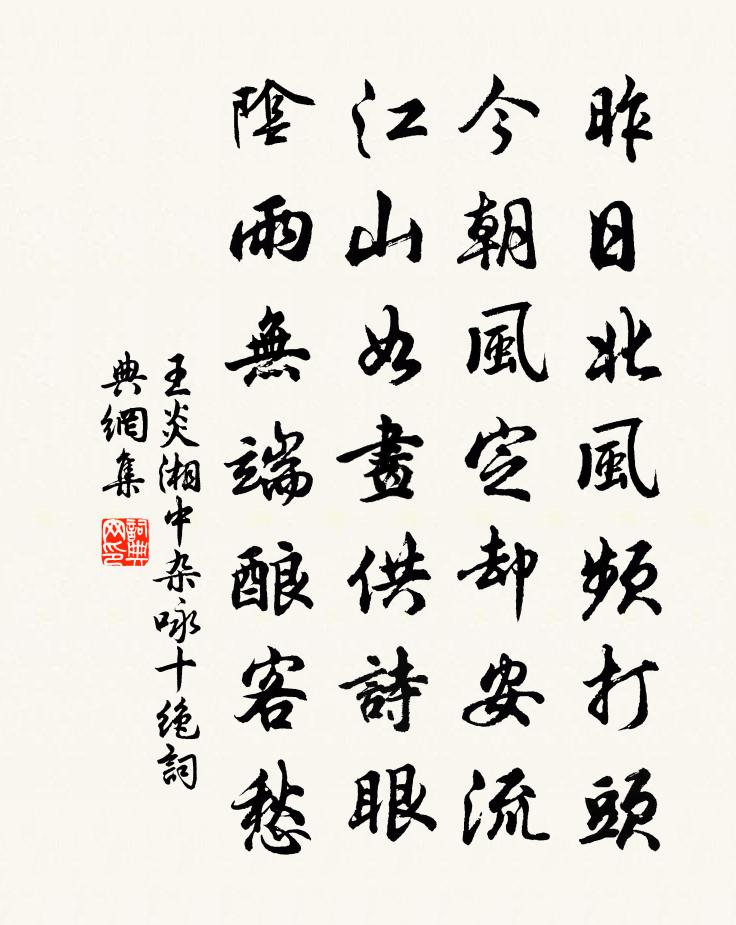 昨日北風頻打頭
今朝風定却安流
江山如畫供詩眼
陰雨無端酿客愁
王炎湘中杂咏十绝詞
典網集
詞典网印